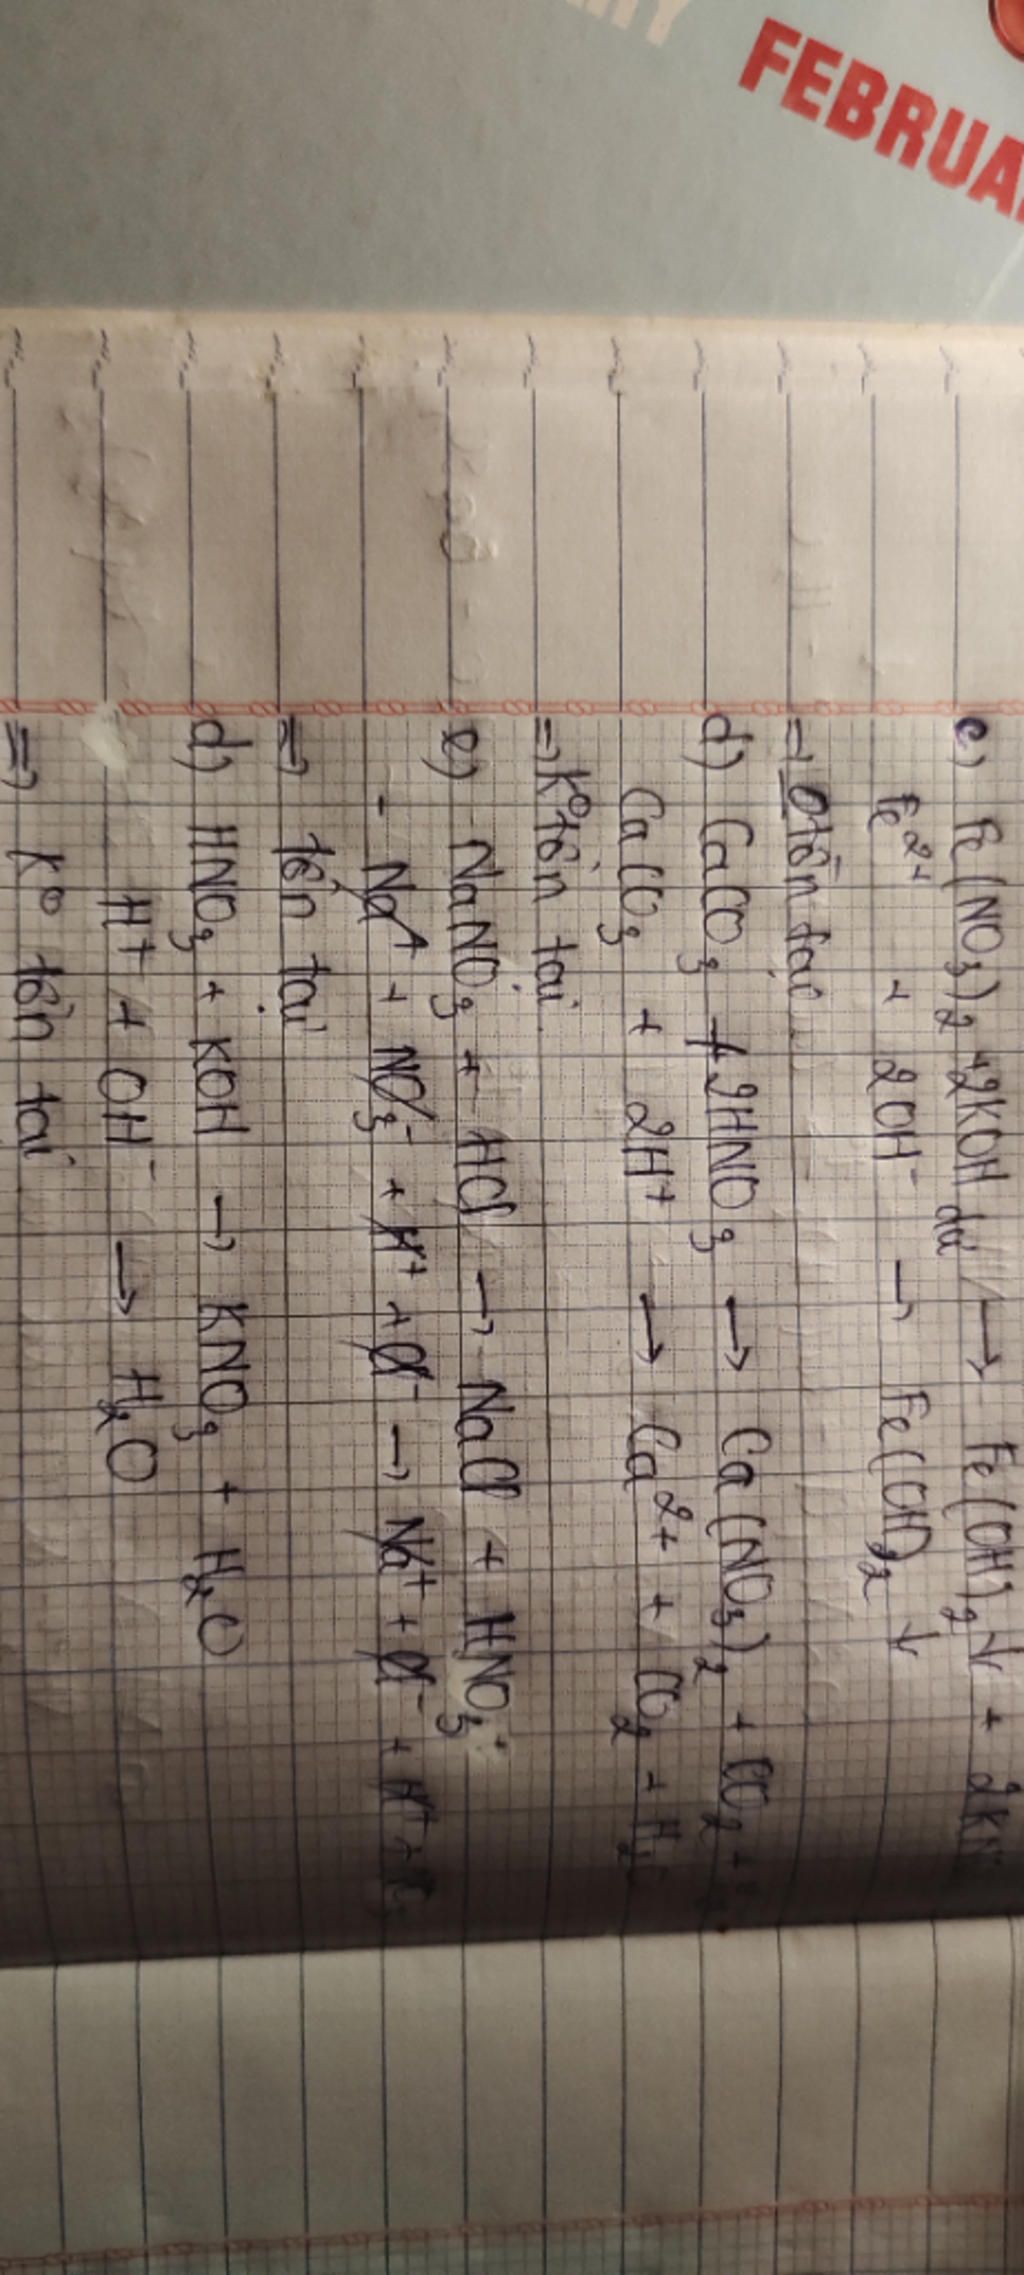 FEBRUA
c) Fe(NO₃)₂ + 2KOH dư → Fe(OH)₂↓ +
Fe²⁺ + 2OH⁻ → Fe(OH)₂ ↓
=> tồn tại
d) CaCO₃ + 2HNO₃ → Ca(NO₃)₂ + CO₂ +
CaCO₃ + 2H⁺ → Ca²⁺ + CO₂ + H₂
=> K⁰ tồn tại
e) NaNO₃ + HCl → NaCl + HNO₃
- Na⁺ + NO₃⁻ + H⁺ + Cl⁻ → Na⁺ + Cl⁻ + H⁺ +
=> tồn tại
d) HNO₃ + KOH → KNO₃ + H₂O
H⁺ + OH⁻ → H₂O
=> K⁰ tồn tại